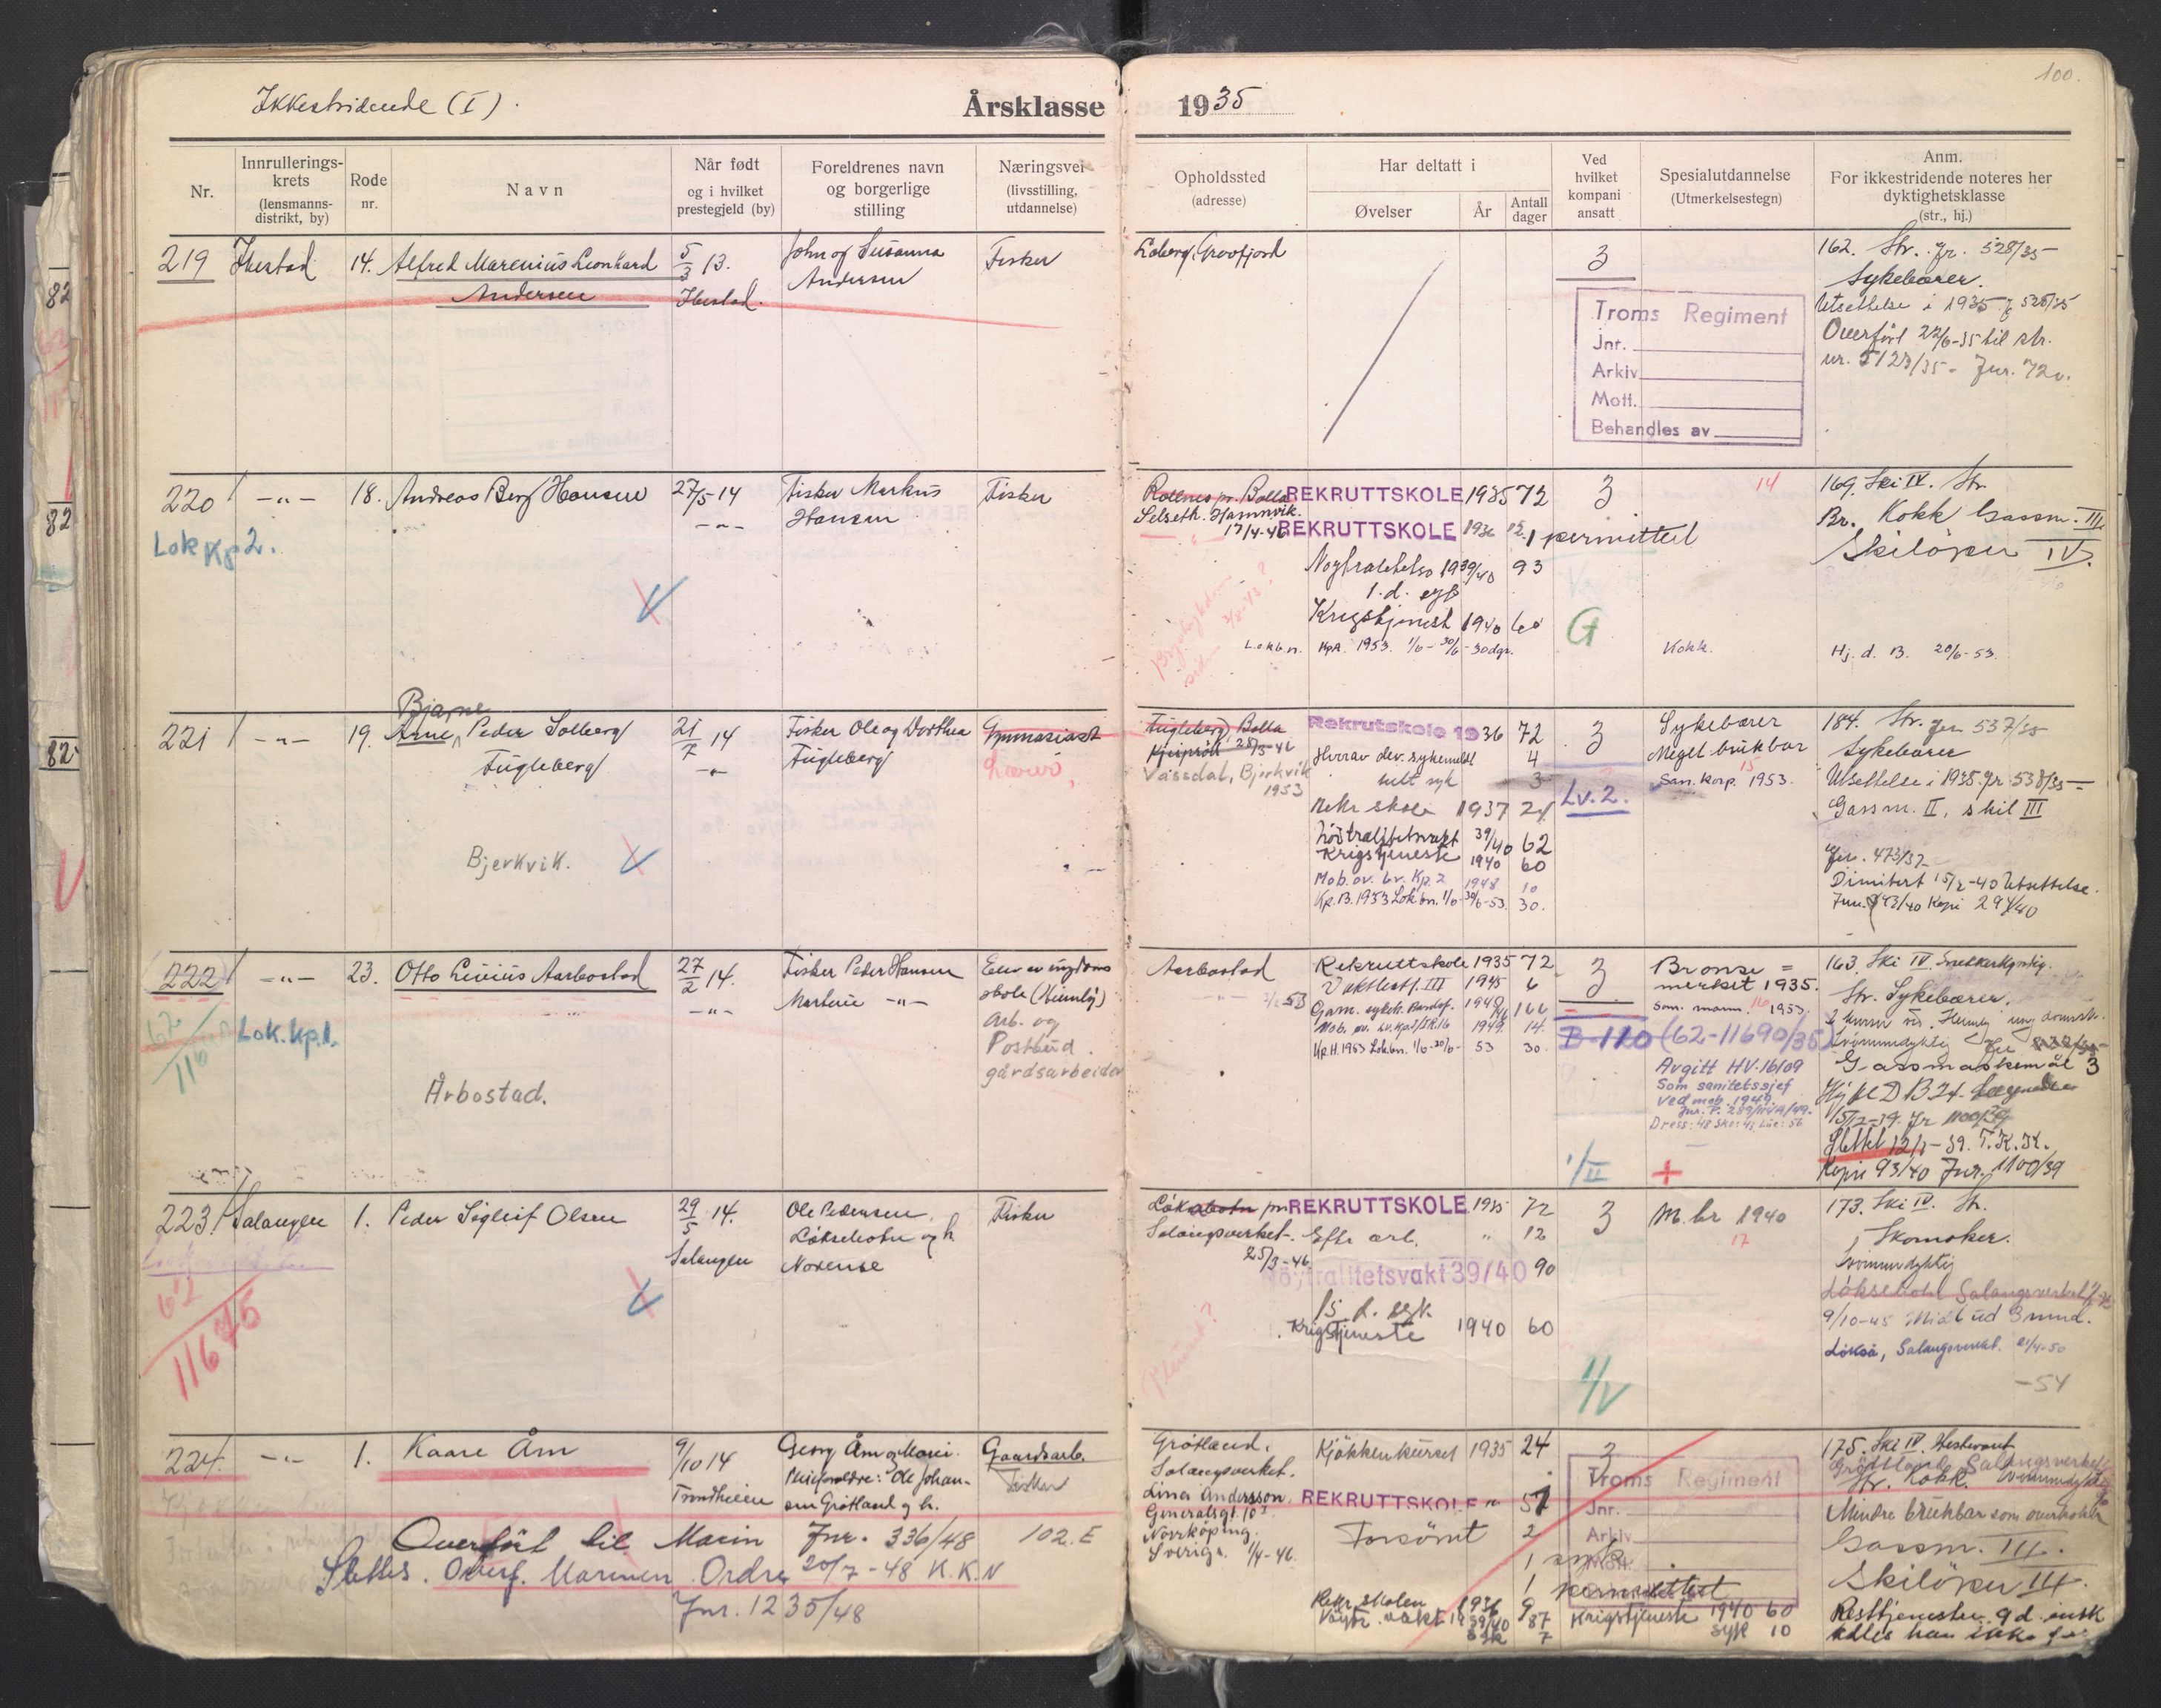 100.
Ikkestridende (I).
Årsklasse 1935
Nr.
Innrullerings-
krets
(lensmanns-
distrikt, by)
Rode
nr.
Navn
Når født
og i hvilket
prestegjeld (by)
Foreldrenes navn
og borgerlige
stilling
Næringsvei
(livsstilling,
utdannelse)
Opholdssted
(adresse)
Har deltatt i
Øvelser
År
Antall
dager
Ved
hvilket
kompani
ansatt
Spesialutdannelse
(Utmerkelsestegn)
Anm.
For ikkestridende noteres her
dyktighetsklasse
(str., hj.)
219 Ibestad 14. Alfred Marenius Leonhard
Andersen
5/3 13.
Ibestad.
John og Susanna
Andersen
Fisker
Grovfjord
3
Troms Regiment
Jnr.
Arkiv
Mott.
Behandles av
162. Str. Jr. 528/35
Sykebærer.
Utsettelse i 1935 Jr 528/35
Overført 22/6-35 til str.
nr. 5123/35 - Jnr. 720.
220 -"- 18. Andreas Berg Hansen
Lok Kp 2.
27/5-14
-"-
Fisker Markus
Hansen
Fisker
Rollnes pr. Bolla
Selseth. Hamnvik.
17/4-46
REKRUTTSKOLE 1935 72
REKRUTTSKOLE 1936 12. 1 permittert
Nøytralitetsv 1939/40 93
1. d. syk
Krigstjenest 1940 60
Lokbn. KpA. 1953. 1/6-30/6-30dgr.
3
G
14
Kokk.
169. Ski IV. Str.
Br. Kokk Gassm. III
Skiløper IV.
Hj. d. B. 20/6-53.
221 -"- 19. Bjarne
Arne Peder Solberg
Fugleberg
Bjerkvik.
21/7 14
-"-
Fisker Ole og Dorthea
Fugleberg
Gymnasiast
Lærer,
Fugleberg, Bolla
28/3-46
Vassdal, Bjerkvik
1953
Rekrutskole 1936 72
Hvorav dev. sykemeldt 4
selt syk 3
Rekr skole 1937 24
Nøitralitetsvakt 39/40 62
Krigstjeneste 1940 60
Mob. øv. Lv. Kp. 2 1948 10
Kp.B. 1953 Lokbn. 1/6-30/6-53. 30.
3
Lv. 2.
Sykebærer
Meget brukbar
15
San. korp. 1953.
184. Str. Jnr 537/35
Sykebærer
Utsettelse i 1935. Jr 538/35
Gassm. II, skil III
Jnr. 473/37
Dimitert 15/2-40 Utsettelse.
Jnr. 843/40 Kopi 294/40
222 -"- 23. Otto Livius Aarbostad
Lok.kp.1.
Årbostad.
27/2 14.
-"-
Fisker Peder Hansen
Martine -"-
Elev av ungdoms
skole (Heimly)
Arb. og
Postbud.
gårdsarbeider
Aarbostad
53
Rekruttskole 1935 72
Vaktlest. III 1945 6
1949 14.
Kp.H. 1953 Lok.bn. 1/6-30/6- 53 30.
3
B-110 (62-11690/35)
Bronse =
merket 1935.
San. mann. 16 1953.
Avgitt HV-16109
Som sanitetssjef
ved mob. 1949.
Dress: 48 Sko: 42 Lue: 56
1/II
+
163. Ski IV. Snekkerkyndig.
Str. Sykebærer.
2 kurser ved Heimly ungdomssk.
Svømmedyktig
Gassmaskemål 3
15/12-39. Jr 1100/39
Slettet 12/1-39. T.K.K.
Kopi 93/40 Jnr. 1100/39
223 Salangen 1. Peder Sigleif Olsen
62
11675
29/5 14.
Salangen
Ole Pedersen,
Løksebotn og h.
Noxense
Fisker
Løksebotn pr.
Salangsverket.
25/3-46
REKRUTTSKOLE 1935 72
Eftr arb. " 12
Nøytralitetsvakt 39/40 90
15 d. syk.
Krigstjeneste 1940 60
3
1/V
M. br 1940
17
173. Ski IV. Str.
Skomaker.
Svømmedyktig
Løksebotn Salangsverket
9/10-45 Midl. ud 3 mnd.
Løkså, Salangsverket. 21/4-50
-54
224. -"- 1. Kaare Åm
9/10 14
Trondheim
Georg Åm og Marie.
Pleieforeldre: Ole Johan-
sen Grøtland og h.
Gaardsarb.
Fisker
Overført til Marin Jnr. 336/48 102. E
Slettes. Overf. Marinen Ordre 20/7-48 K.K.N
Jnr. 1235/48
Grøtland,
Salangsverket.
Lina Andersson,
Generalsgt. 10
Norrköping.
Sverige. 1/4-46.
Kjøkkenkurset 1935 24
REKRUTTSKOLE " 57
Forsømt 2
1 syk.
1 permittert
Rekr. skolen 1936 9
Nøytr. vakt 1939/40 87
syk 7
Krigstjeneste 1940 60
syk 10
3
Troms Regiment
Jnr.
Arkiv
Mott.
175. Ski IV. Hestevant
Grøtland Salangsverket
Str. Kokk. Svømmedyktig
Mindre brukbar som overkokk
Gassm. III.
Skiløper III.
Resttjenesten 9 d. innk
kalles han ikke